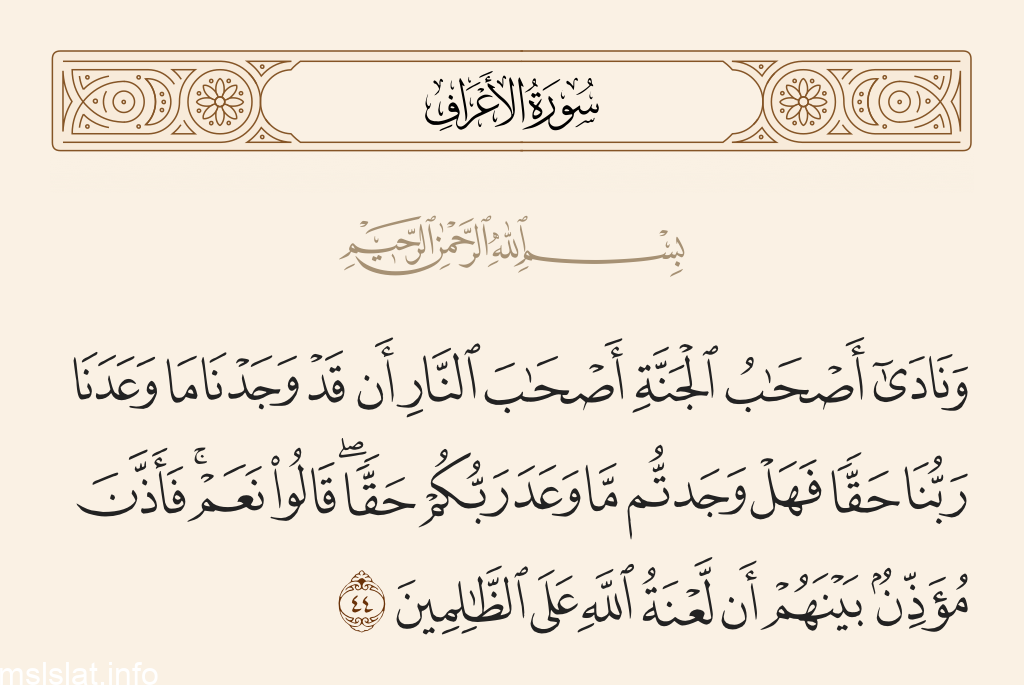 سُورَةُ الأَعْرَافِ
بِسْمِ ٱللَّهِ ٱلرَّحْمَٰنِ ٱلرَّحِيمِ
وَنَادَىٰٓ أَصْحَٰبُ ٱلْجَنَّةِ أَصْحَٰبَ ٱلنَّارِ أَن قَدْ وَجَدْنَا مَا وَعَدَنَا
رَبُّنَا حَقًّا فَهَلْ وَجَدتُّم مَّا وَعَدَ رَبُّكُمْ حَقًّا ۖ قَالُوا۟ نَعَمْ ۚ فَأَذَّنَ
مُؤَذِّنٌۢ بَيْنَهُمْ أَن لَّعْنَةُ ٱللَّهِ عَلَى ٱلظَّٰلِمِينَ ٤٤
mslslat.info